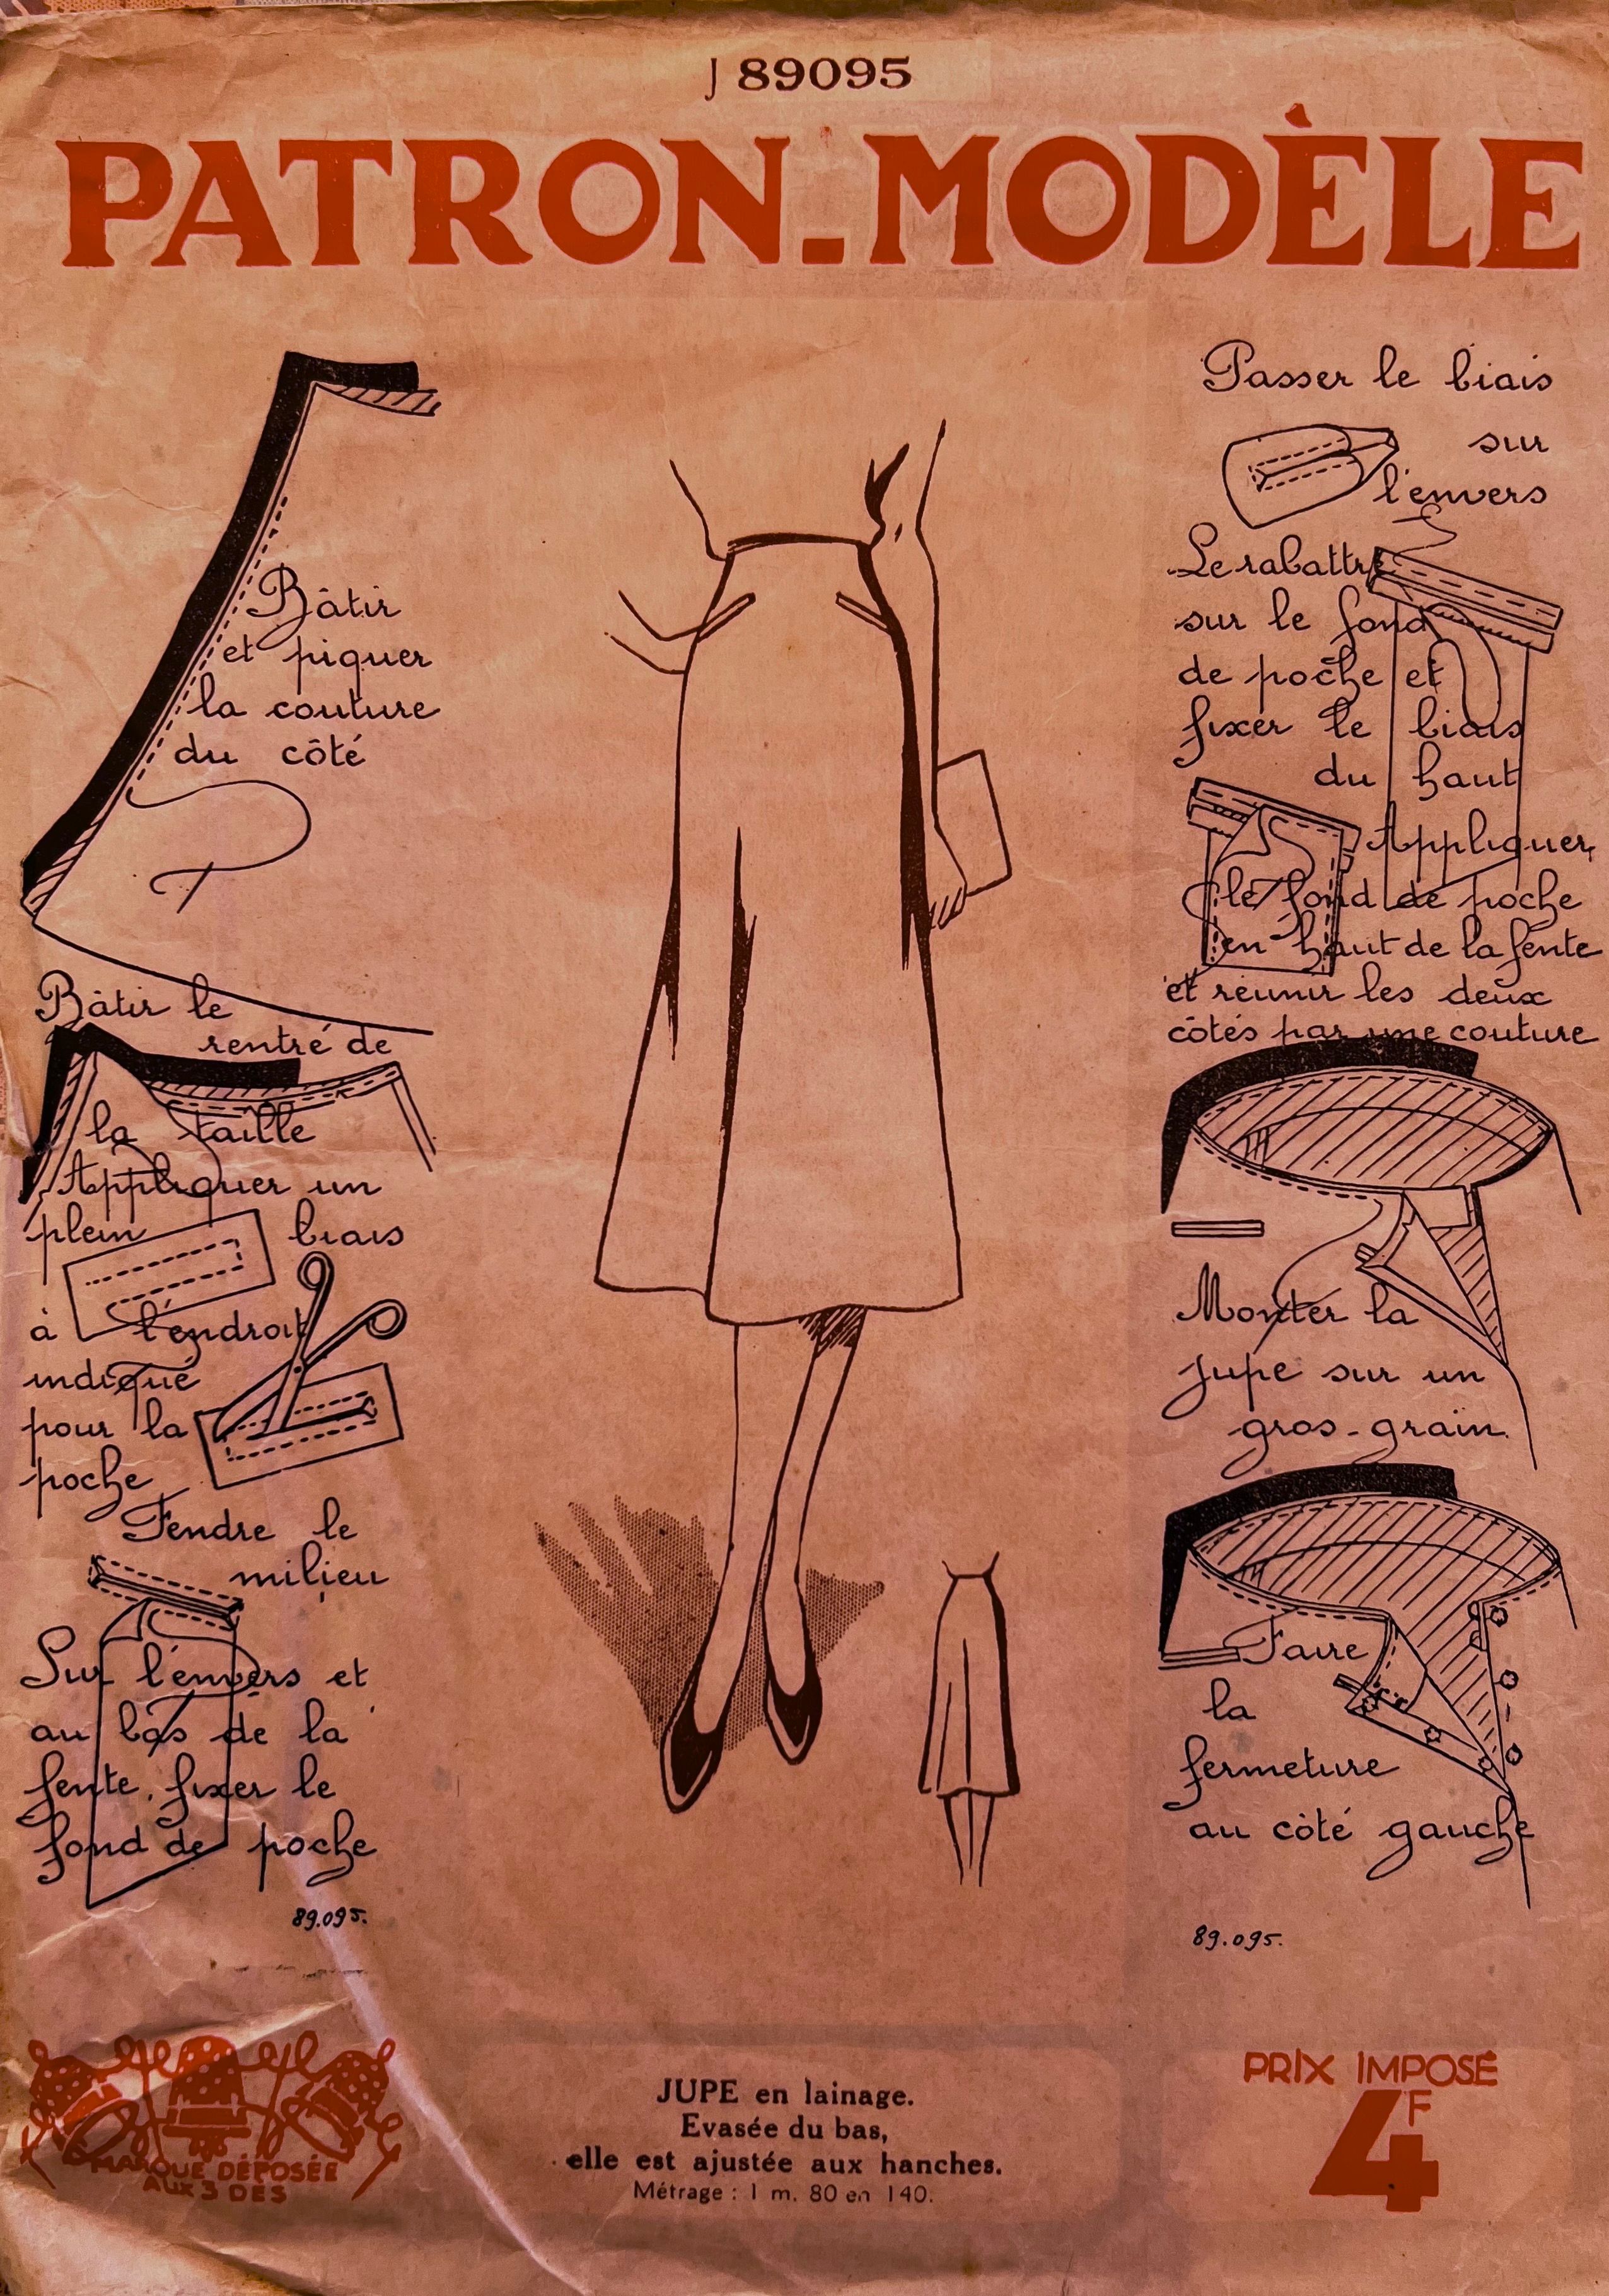 J 89095
PATRON-MODÈLE
Bâtir
et piquer
la couture
du côté
Bâtir le
rentré de
la taille
Appliquer un
plein biais
à l'endroit
indiqué
pour la
poche
Fendre le
milieu
Sur l'envers et
au bas de la
fente, fixer le
fond de poche
89.095.
Passer le biais
sur
l'envers
Le rabattre
sur le fond
de poche et
fixer le biais
du haut
Appliquer
le fond de poche
en haut de la fente
et réunir les deux
côtés par une couture
Monter la
jupe sur un
gros-grain.
Faire
la
fermeture
au côté gauche
89.095.
MARQUE DÉPOSÉE
AUX 3 DES
JUPE en lainage.
Evasée du bas,
elle est ajustée aux hanches.
Métrage : 1 m. 80 en 140.
PRIX IMPOSÉ
4F